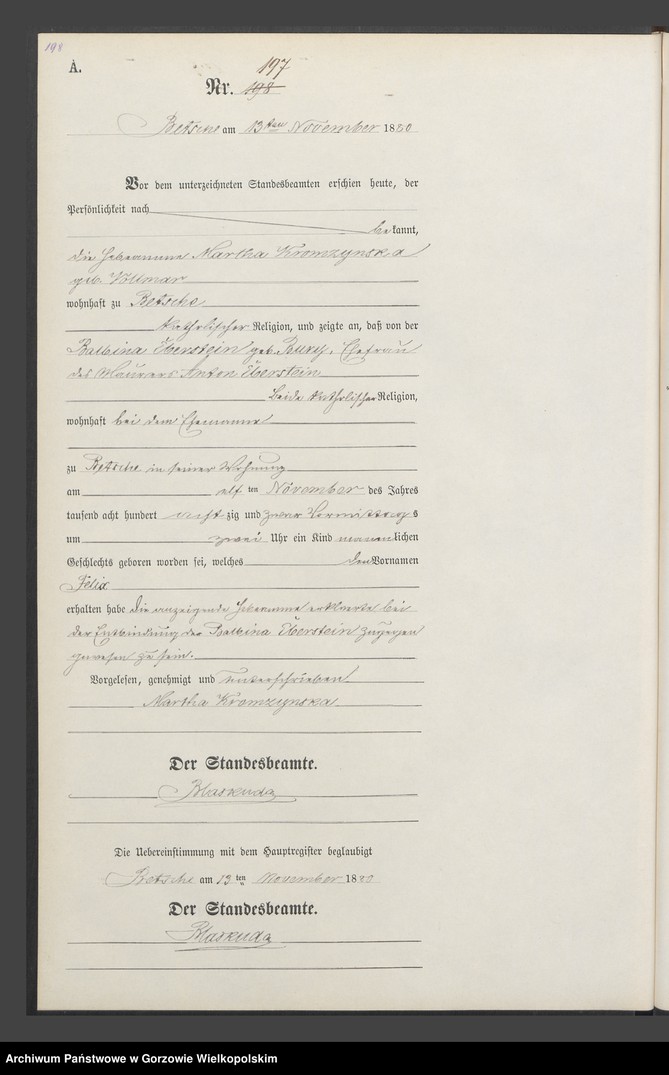 198
A.
197
Nr. 198
Betsche am 13ten November 1880
Vor dem unterzeichneten Standesbeamten erschien heute, der
Persönlichkeit nach
bekannt,
die Hebeamme Martha Kromzynska
geb. Vollmar
wohnhaft zu Betsche
katholischer Religion, und zeigte an, daß von der
Balbina Überstein geb. Bury, Ehefrau
des Maurers Anton Überstein
beide katholischer Religion,
wohnhaft bei dem Ehemanne
zu Betsche in seiner Wohnung
am elf ten November des Jahres
tausend acht hundert acht zig und zwar Vormittags
um zwei Uhr ein Kind männlichen
Geschlechts geboren worden sei, welches den Vornamen
Felix
erhalten habe die anzeigende Hebeamme erklärte bei
der Entbindung der Balbina Überstein zugegen
gewesen zu sein.
Vorgelesen, genehmigt und unterschrieben
Martha Kromzynska
Der Standesbeamte.
Blaskuda
Die Uebereinstimmung mit dem Hauptregister beglaubigt
Betsche am 13 ten November 1880
Der Standesbeamte.
Blaskuda
Archiwum Państwowe w Gorzowie Wielkopolskim